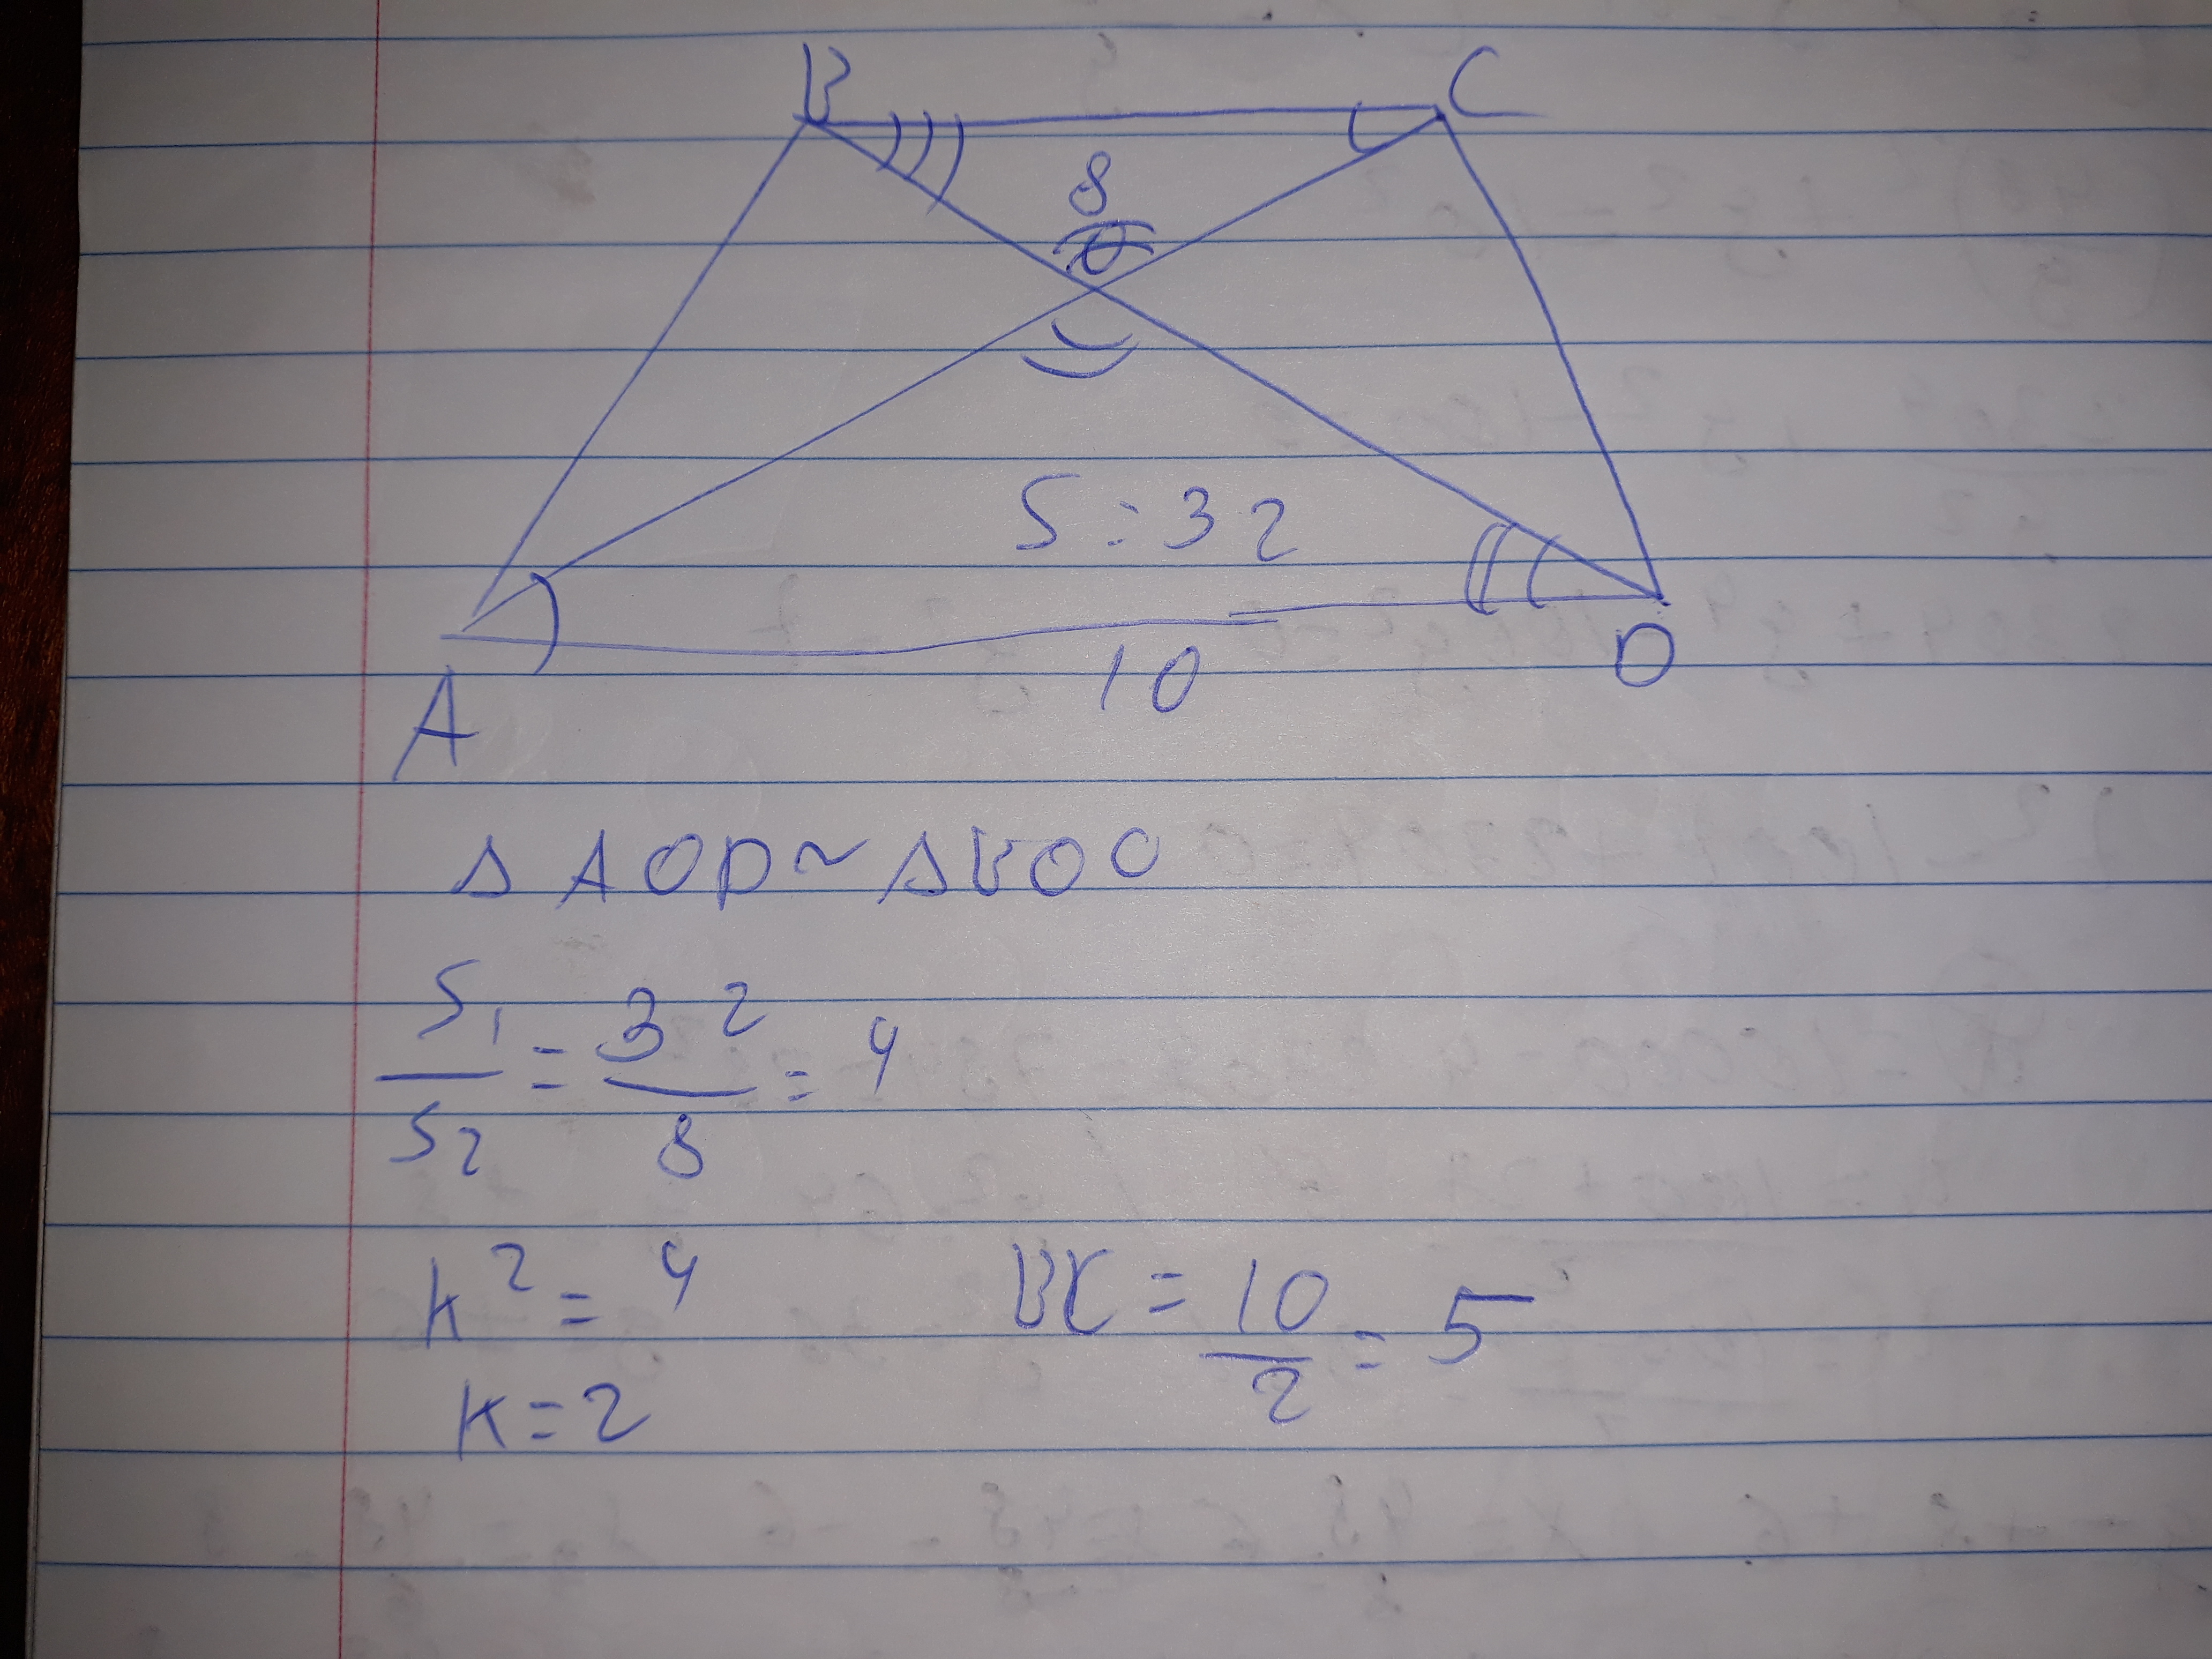 B C
8
O
S = 32
A 10 D
Δ AOD ~ Δ BOC
S1/S2 = 32/8 = 4
k² = 4 BC = 10/2 = 5
k = 2